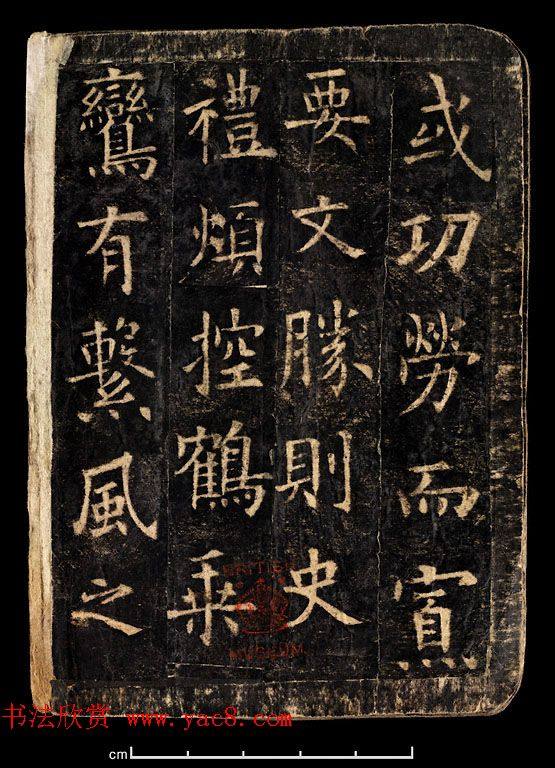 或功勞而寡
要文勝則史
禮煩控鶴乘
鸞有繫風之
BRITISH
MUSEUM
书法欣赏 www.yac8.com
cm